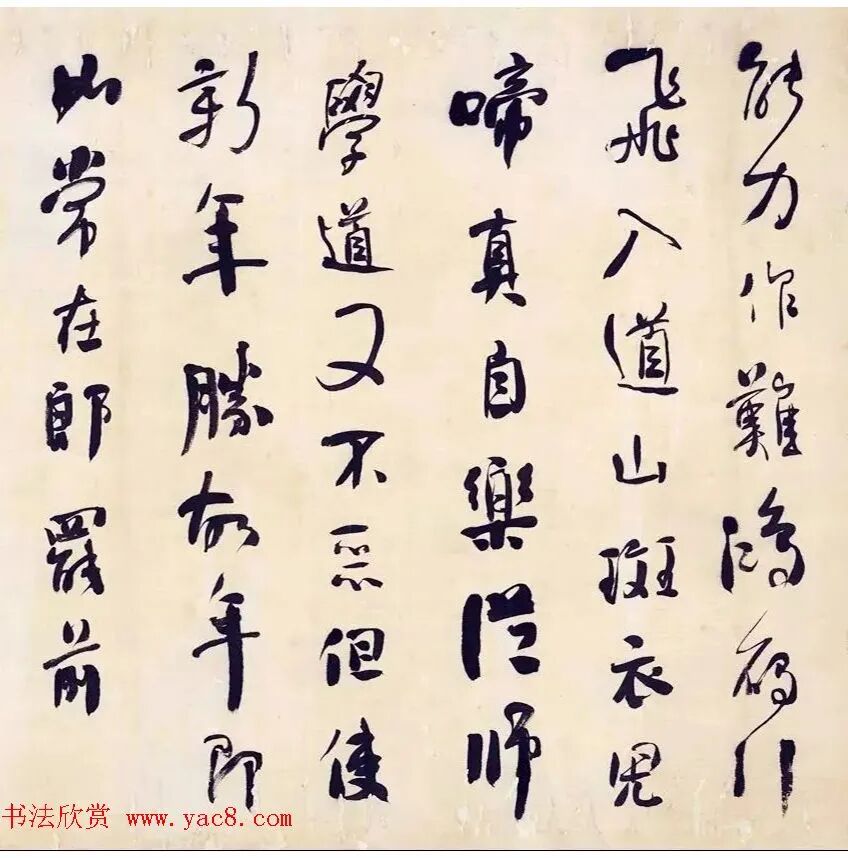 能力作難鴻雁行
飛入道山斑衣兒
啼真自樂從師
學道又不惡但使
新年勝故年即
如常在郎罷前
书法欣赏 www.yac8.com